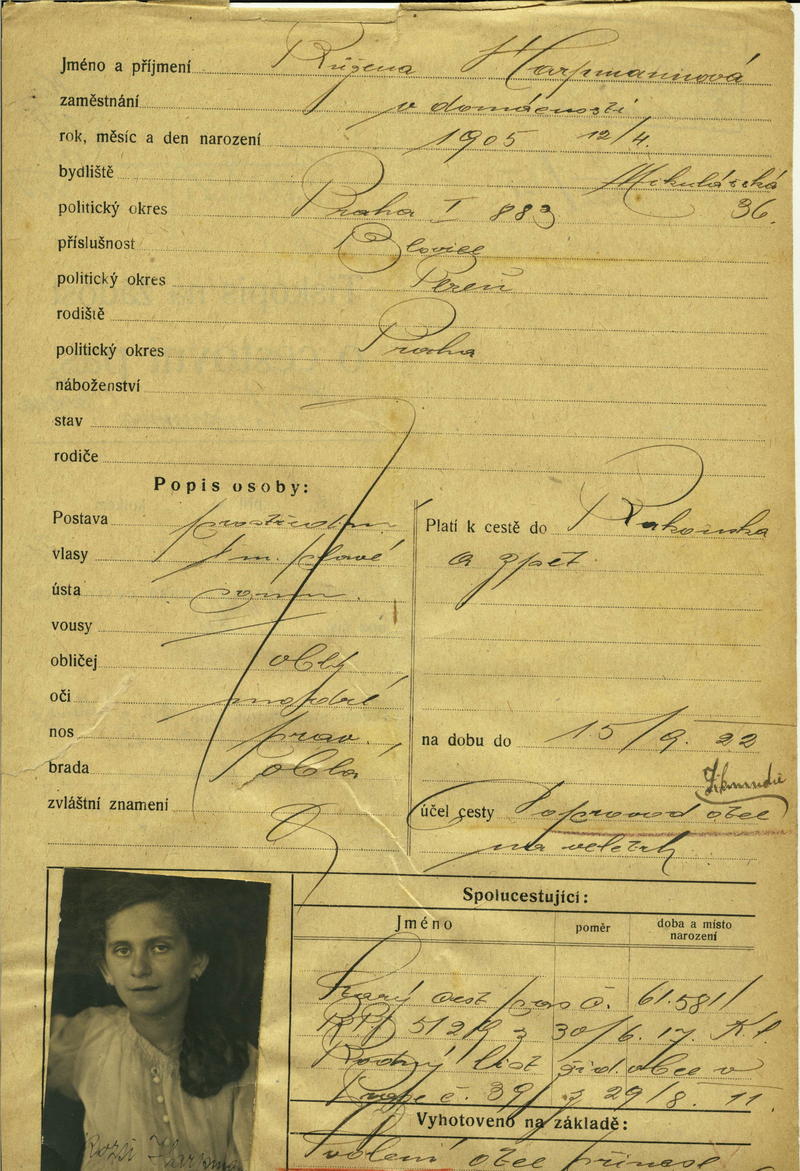 Jméno a příjmení Růžena Harpmannová
zaměstnání v domácnosti
rok, měsíc a den narození 1905 12/4.
bydliště Mikulášská
politický okres Praha I 883 36.
příslušnost Blovice
politický okres
rodiště
politický okres Praha
náboženství
stav
rodiče
Popis osoby:
Postava prostřední
vlasy tm. plavé
ústa soum.
vousy
obličej oblý
oči modré
nos prav.
brada oblá
zvláštní znamení
Platí k cestě do Rakouska
a zpět
na dobu do 15/9. 22
účel cesty Doprovod otce
na veletrh
Spolucestující:
Jméno poměr doba a místo
narození
Starý cest. pas č. 61.581/
5129 z 30/6. 17.
Rodný list žid. obce v
Praze č. 39 z 29/8. 11.
Vyhotoveno na základě:
Svolení otec přinesl
Rozsi Harpman